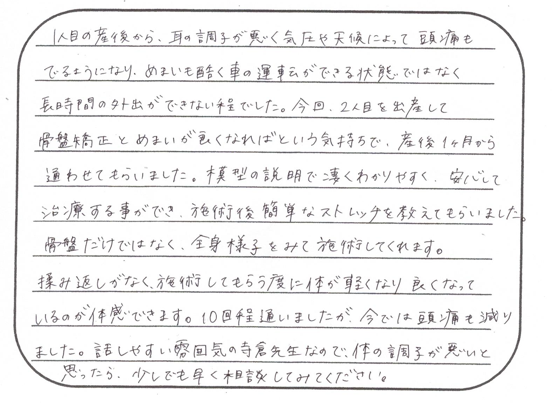 1人目の産後から、耳の調子が悪く気圧や天候によって頭痛も
でるようになり、めまいも酷く車の運転ができる状態ではなく
長時間の外出ができない程でした。今回、2人目を出産して
骨盤矯正とめまいが良くなればという気持ちで、産後1ヶ月から
通わせてもらいました。模型の説明で凄くわかりやすく、安心して
治療する事ができ、施術後簡単なストレッチを教えてもらいました。
骨盤だけではなく、全身様子をみて施術してくれます。
揉み返しがなく、施術してもらう度に体が軽くなり良くなって
いるのが体感できます。10回程通いましたが、今では頭痛も減り
ました。話しやすい雰囲気の寺倉先生なので、体の調子が悪いと
思ったら、少しでも早く相談してみてください。